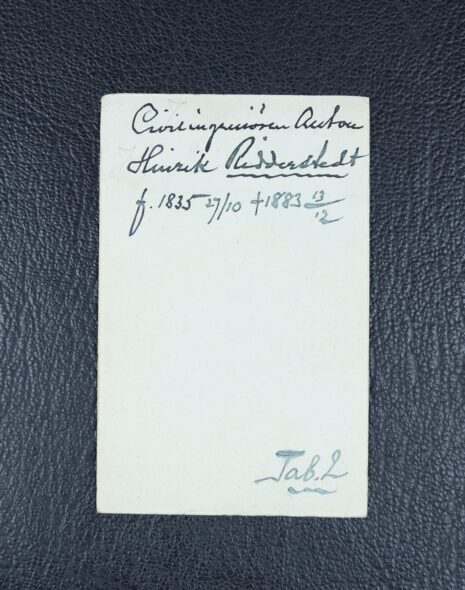 Civilingeniören Anton
Hinrik Ridderstedt
f. 1835 27/10 † 1883 13/12
Tab. 2